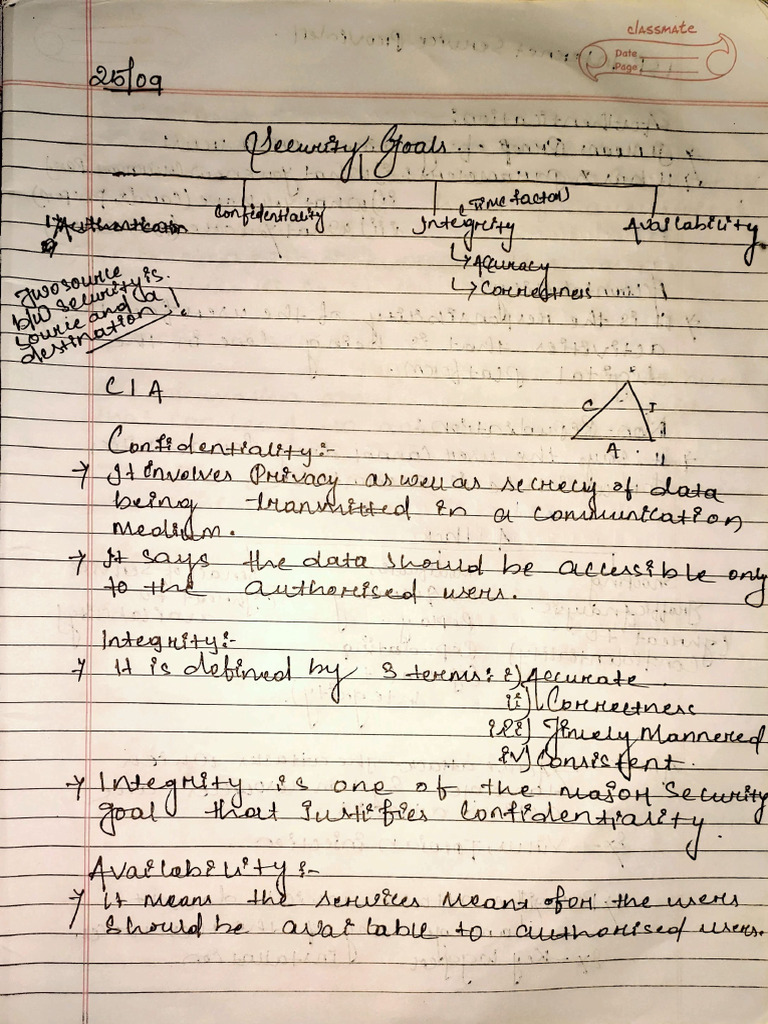 classmate
Date
Page
25/09
Security Goals
Confidentiality
(Time factor)
Integrity
Availability
1) Authentication
2)
↳ Accuracy
↳ Correctness
Two source
b/w security is
source and a
destination!
CIA
C
I
A
Confidentiality:-
→ It involves Privacy as well as secrecy of data
being transmitted in a communication
medium.
→ It says the data should be accessible only
to the authorised users.
Integrity:-
→ It is defined by 3 terms: i) Accurate
ii) Correctness
iii) Timely Mannered
iv) Consistent.
→ Integrity is one of the major security
goal that justifies confidentiality.
Availability:-
→ it means the services meant for the users
should be available to authorised users.